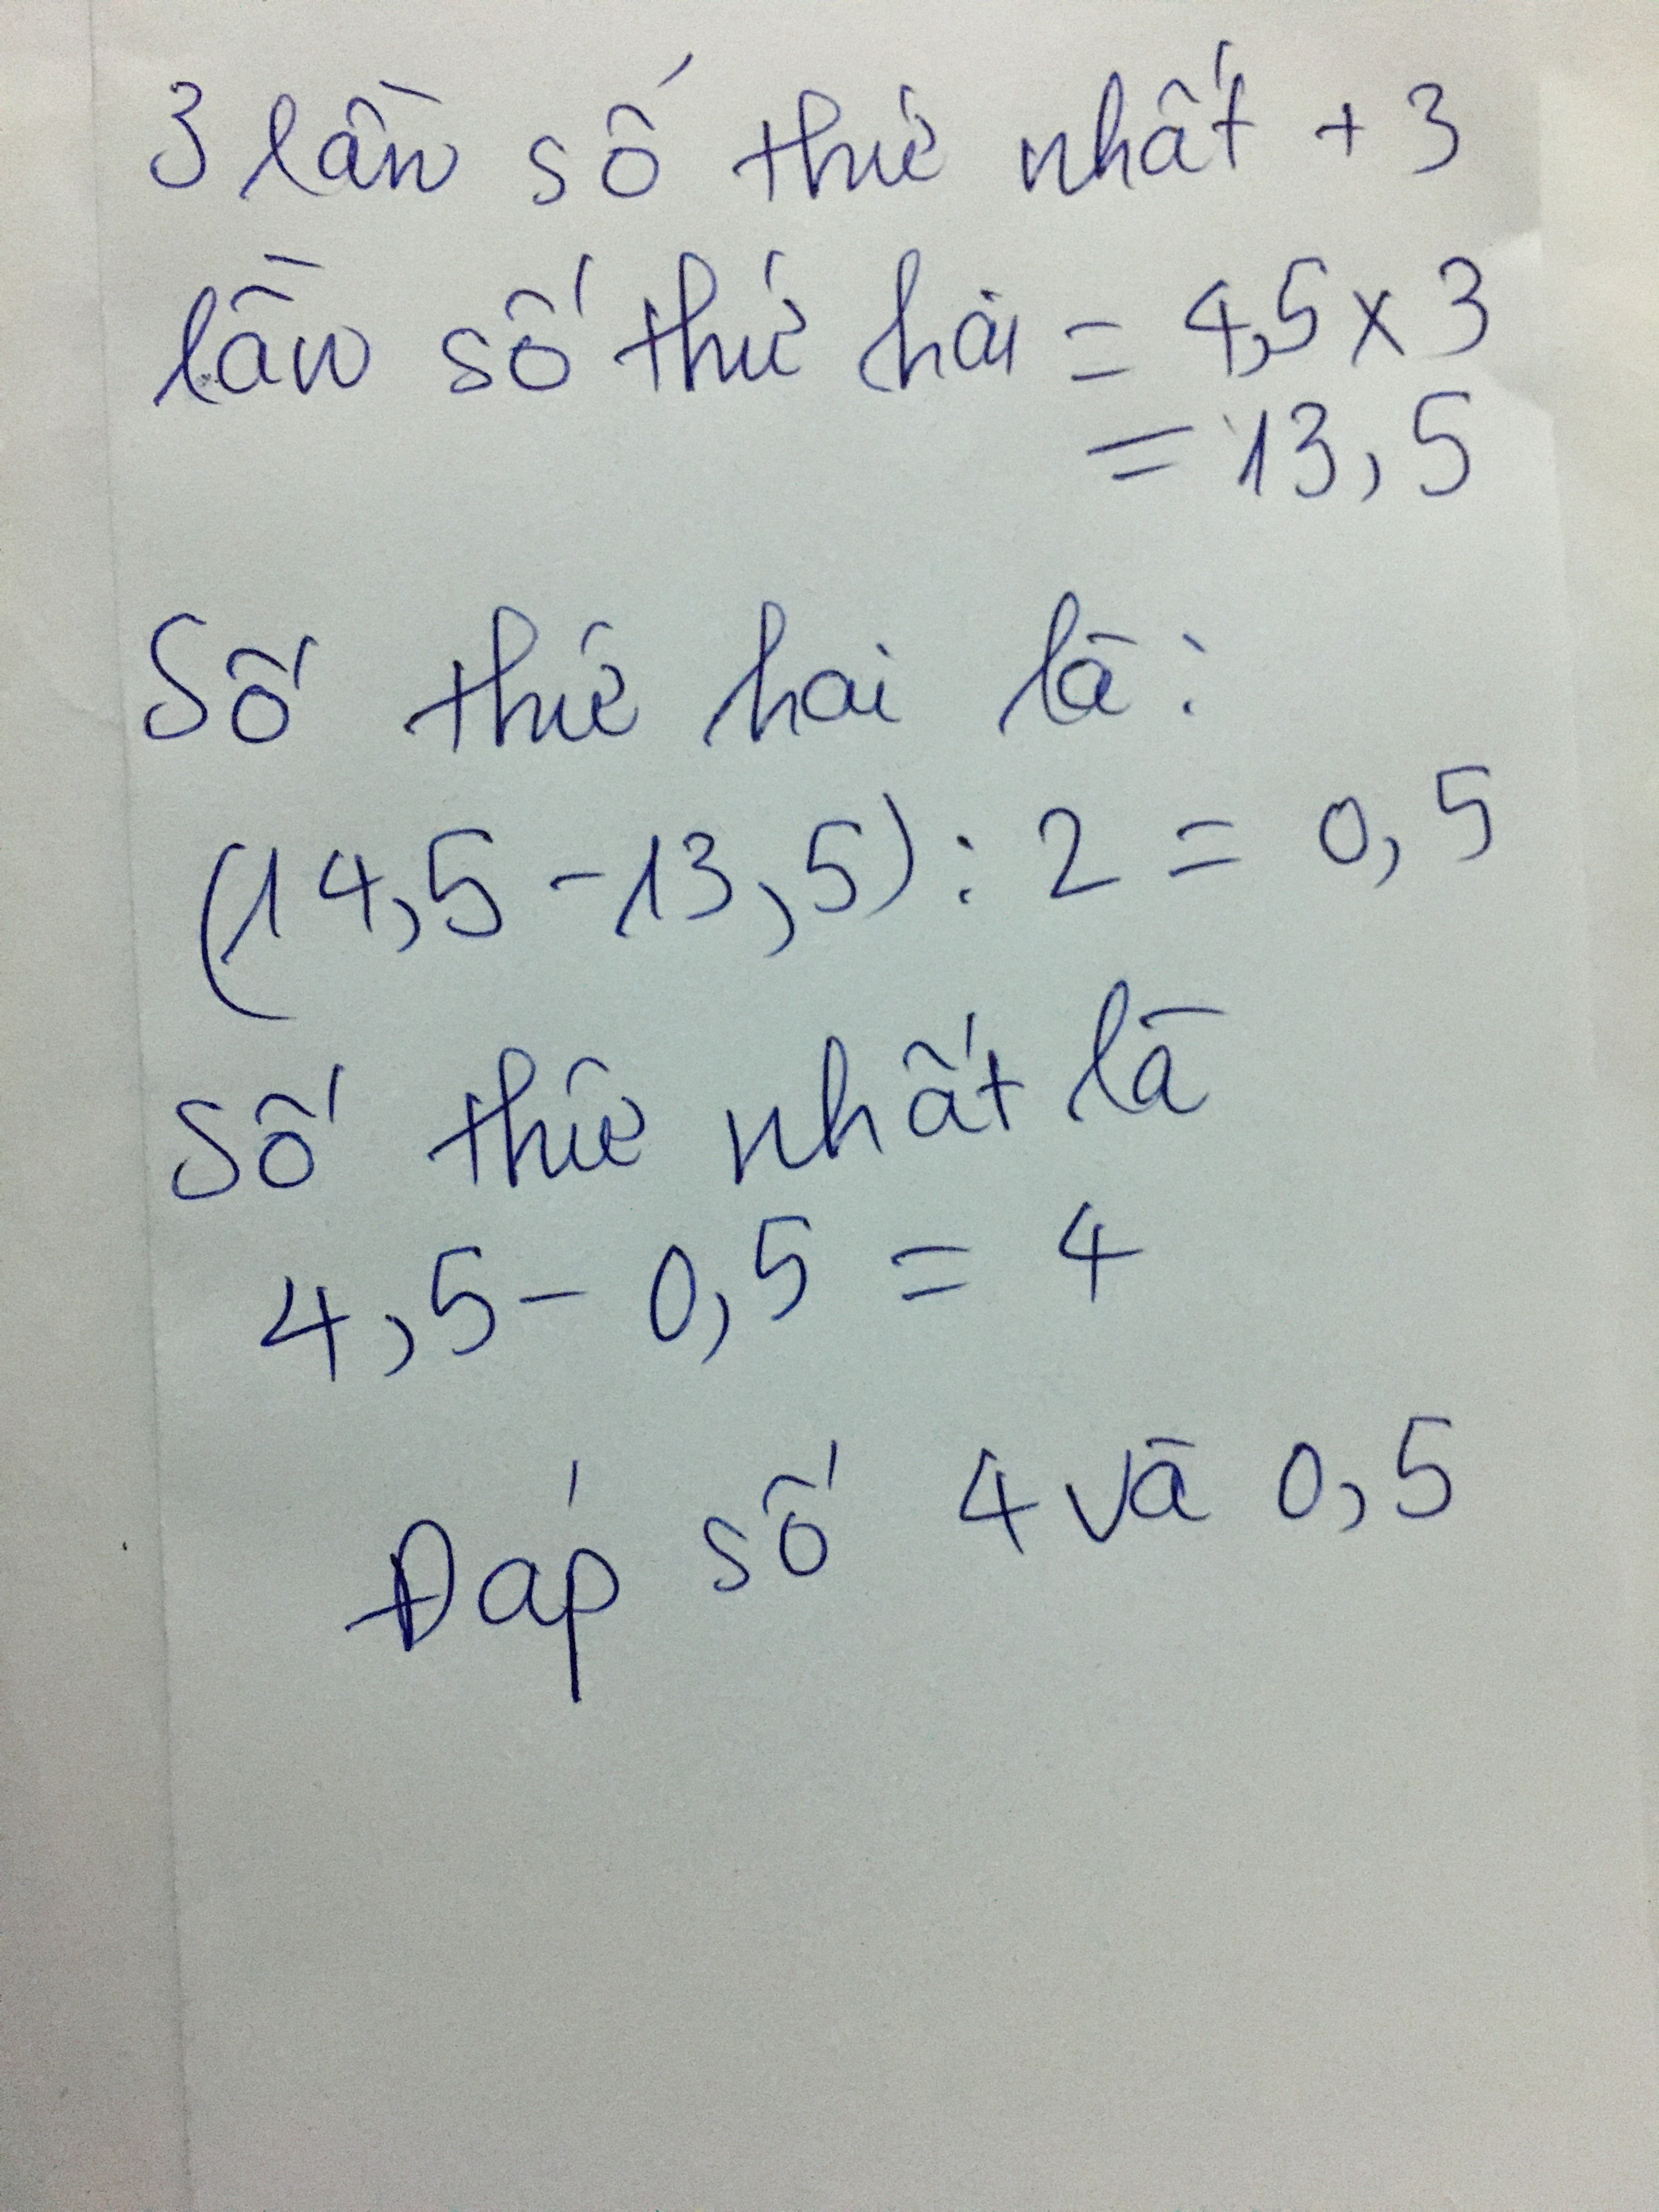 3 lần số thứ nhất + 3
lần số thứ hai = 4,5 x 3
= 13,5
Số thứ hai là:
(14,5 - 13,5) : 2 = 0,5
Số thứ nhất là
4,5 - 0,5 = 4
Đáp số 4 và 0,5